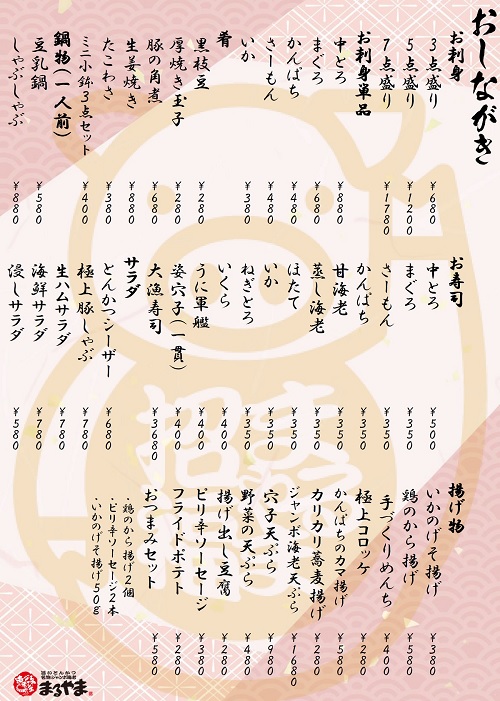 おしながき
お刺身
3点盛り ￥680
5点盛り ￥1200
7点盛り ￥1780
お刺身単品
中とろ ￥880
まぐろ ￥680
かんぱち ￥480
さーもん ￥480
いか ￥380
肴
黒枝豆 ￥280
厚焼き玉子 ￥280
豚の角煮 ￥680
生姜焼き ￥880
たこわさ ￥380
ミニ小鉢3点セット ￥400
鍋物（一人前）
豆乳鍋 ￥580
しゃぶしゃぶ ￥880
お寿司
中とろ ￥500
まぐろ ￥350
さーもん ￥350
かんぱち ￥350
甘海老 ￥350
蒸し海老 ￥350
ほたて ￥350
いか ￥350
ねぎとろ ￥350
いくら ￥400
うに軍艦 ￥400
姿穴子（一貫） ￥400
大漁寿司 ￥3680
サラダ
とんかつシーザー ￥680
極上豚しゃぶ ￥780
生ハムサラダ ￥780
海鮮サラダ ￥780
浸しサラダ ￥580
揚げ物
いかのげそ揚げ ￥380
鶏のから揚げ ￥580
手づくりめんち ￥400
極上コロッケ ￥280
かんぱちのカマ揚げ ￥580
カリカリ蕎麦揚げ ￥280
ジャンボ海老天ぷら ￥1680
穴子天ぷら ￥980
野菜の天ぷら ￥480
揚げ出し豆腐 ￥280
ピリ辛ソーセージ ￥380
フライドポテト ￥280
おつまみセット ￥580
・鶏のから揚げ2個
・ピリ辛ソーセージ2本
・いかのげそ揚げ50g
まるやま